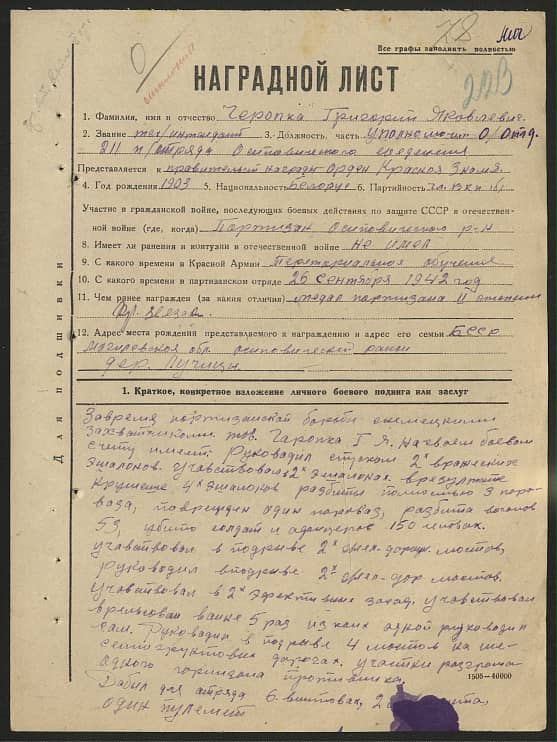 28
Все графы заполнить полностью
НАГРАДНОЙ ЛИСТ
1. Фамилия, имя и отчество Чаропка Григорий Яковлевич
2. Звание тех/интендант 3. Должность, часть Уполномоч О/Отд.
211 п/отряда Осиповичского соединения
Представляется к правительст награды Орден Красное Знамя.
4. Год рождения 1903 5. Национальность Белорус 6. Партийность
Участие в гражданской войне, последующих боевых действиях по защите СССР и отечествен-
ной войне (где, когда) Партизан Осиповичского р-н
8. Имеет ли ранения и контузии в отечественной войне не имел
9. С какого времени в Красной Армии Территориальное обучение
10. С какого времени в партизанском отряде 26 сентября 1942 год
11. Чем ранее награжден (за какие отличия) медаль партизана II степени
12. Адрес места рождения представляемого к награждению и адрес его семьи БССР
Могилевская обл. осиповический район
дер. Лучицы
Для подшивки
1. Краткое, конкретное изложение личного боевого подвига или заслуг
За время партизанской борьбы с немецкими
захватчиками тов. Чаропка Г Я. На своем боевом
счету имеет: Руководил спуском 2х вражеских
эшалонов. Учавствовал в 2х эшалонах. В результате
крушение 4х эшалонов разбиты полностью 3 поро-
воза, поврежден один паровоз, разбита вагонов
53, убито солдат и офицеров 150 человек.
учавствовал в подрыве 2х желе. дорож. мостов,
руководил в подрыве 2х желе-дор мостов.
Учавствовал в 2х засад, учавствовал
в рельсовой войне 5 раз из коих одной руководил
сам. Руководил в подрыве 4 мостов на шо-
дорогах. участник разгрома
одного гарнизона противника.
Добыл для отряда 6 винтовак, 2
один пулемет
1505—40000